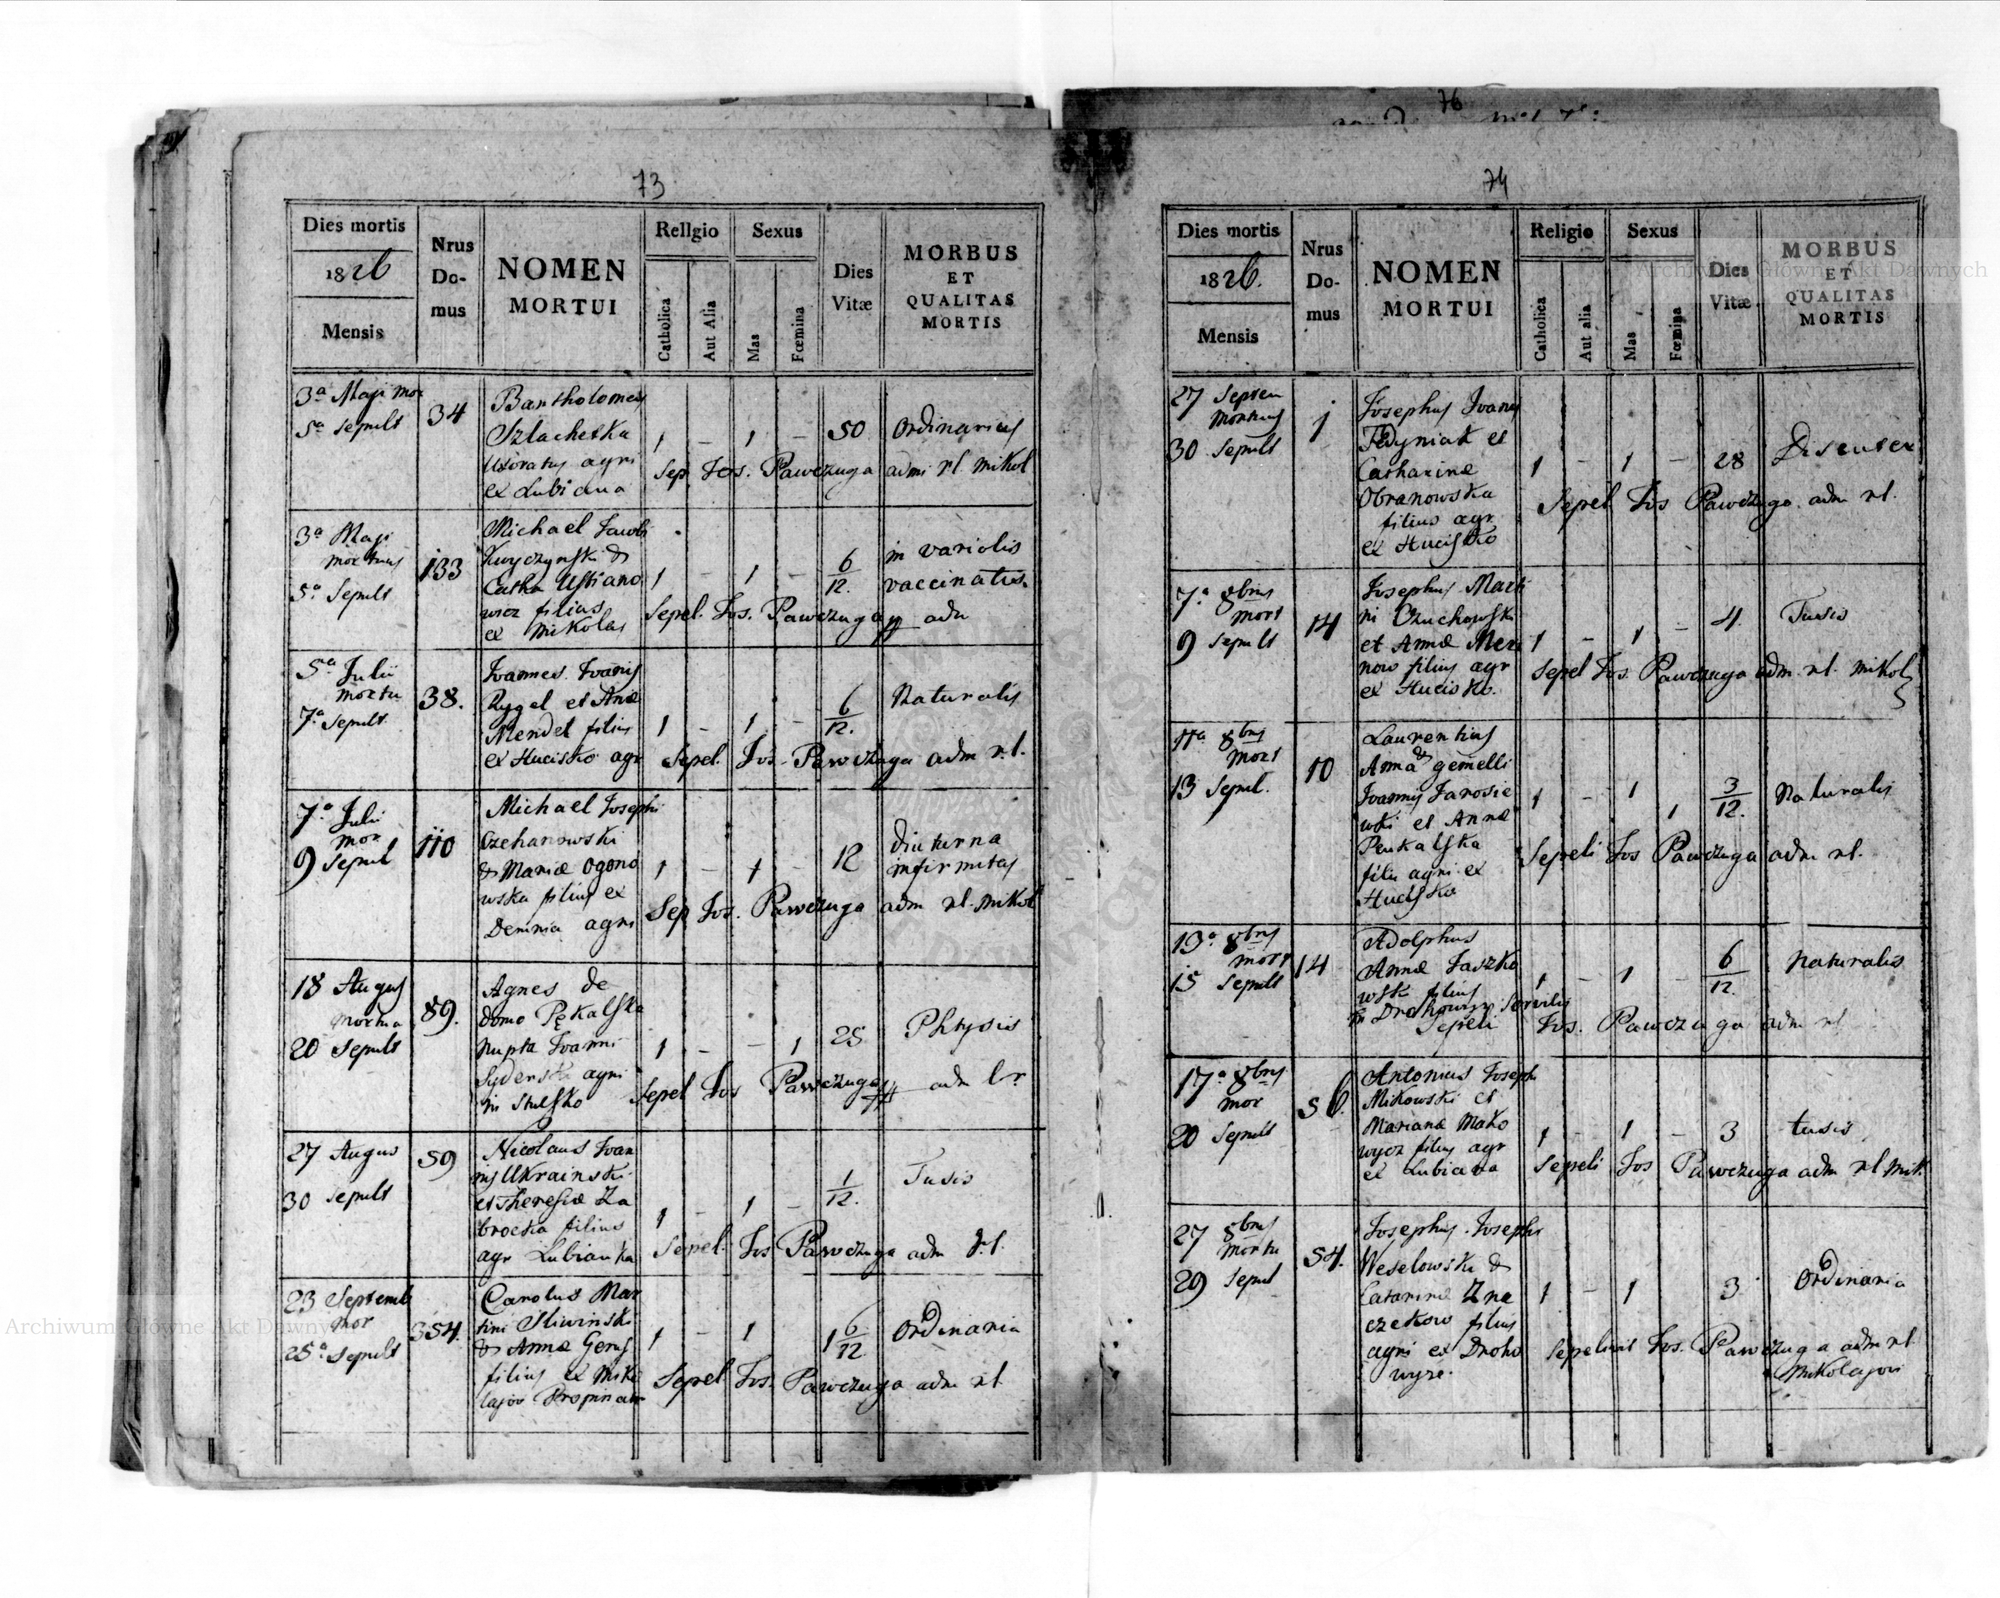 76
73
Dies mortis
1826
Mensis
Nrus
Do-
mus
NOMEN
MORTUI
Religio
Catholica
Aut Alia
Sexus
Mas
Fœmina
Dies
Vitæ
MORBUS
ET
QUALITAS
MORTIS
3a Maji mor
5a Sepult
34
Bartholomeus
Szlachetka
Uxoratus agri
ex Lubiana
1 - 1 - 50
Ordinarius
Sep. Jos. Pawczuga admi rl. Mikol
3a Maji
mortuus
5a Sepult
133
Michael Jacobi
&
Catha Ustiano
wicz filius
ex Mikolaj
1 - 1 - 6/12.
in variolis
vaccinatus.
Sepel. Jos. Pawczuga adm
5a Julii
mortu
7a Sepult.
38.
Joannes Joannis
Rygel et Anæ
Mendel filius
ex Hucisko agr
1 - 1 - 6/12.
Naturalis
Sepel. Jos. Pawczuga adm rl.
7a Julii
mor
9 Sepul
110
Michael Josephi
Czehanowski
& Mariæ Ogono
wska filius ex
Demnia agri
1 - 1 - 12
diuturna
infirmitas
Sep Jos. Pawczuga adm rl. Mikol
18 Augus
mortua
20 Sepult
89.
Agnes de
domo Pękalska
nupta Joanni
agri
in Stulsko
1 - - 1 25
Phtysis
Sepel Jos Pawczuga adm lr
27 Augus
30 Sepult
59
Nicolaus Joan
nis Ukrainski
et Theresiæ Za
brocka filius
agr Lubianka
1 - 1 - 1/12.
Tusis
Sepel. Jos Pawczuga adm rl.
23 Septemb
mor
25a Sepult
354.
Carolus Mar
tini Sliwinski
& Annæ Gens
filius ex Miko
lajov Propinator
1 - 1 1 6/12
Ordinaria
Sepel Jos. Pawczuga adm rl
74
Dies mortis
1826.
Mensis
Nrus
Do-
mus
NOMEN
MORTUI
Religio
Catholica
Aut alia
Sexus
Mas
Fœmina
Dies
Vitæ
MORBUS
ET
QUALITAS
MORTIS
27 Septem
mortuus
30 Sepult
1
Josephus Joannis
Fedyniak et
Catharinæ
Obranowska
filius agr
ex Hucisko
1 - 1 - 28
Sepel Jos Pawczuga adm rl.
7a 8bris
mort
9 Sepult
14
Josephus Marti
ni Czuchowski
et Annæ
filius agr
ex Hucisko.
1 - 1 - 4.
Tusis
Sepel Jos. Pawczuga adm. rl. Mikol
11a 8bris
mort
13 Sepul.
10
Laurentius
& Anna gemelli
Joannis Jarosie
wski et Annæ
Penkalska
filii agri ex
Hucisko
1 - 1 1 3/12.
Naturalis
Sepeli Jos Pawczuga adm rl.
13a 8bris
mort
15 Sepult
14
Adolphus
Annæ Jaszko
wski filius
in Drohowyz Servilis
1 - 1 - 6/12.
Naturalis
Sepeli Jos. Pawczuga adm rl
17a 8bris
mor
20 Sepult
56.
Antonius Josephi
Mikowski et
Marianæ Mako
wycz filius agr
ex Lubiana
1 - 1 - 3
tusis
Sepeli Jos Pawczuga adm rl Mik.
27 8bris
mortu
29 Sepul
54.
Josephus Josephi
Weselowski &
Catarinæ Zna
czekow filius
agri ex Droho
wyze.
1 - 1 3
Ordinaria
Sepelivit Jos. Pawczuga adm rl
Mikolajov
Archiwum Główne Akt Dawnych
Archiwum Główne Akt Dawnych